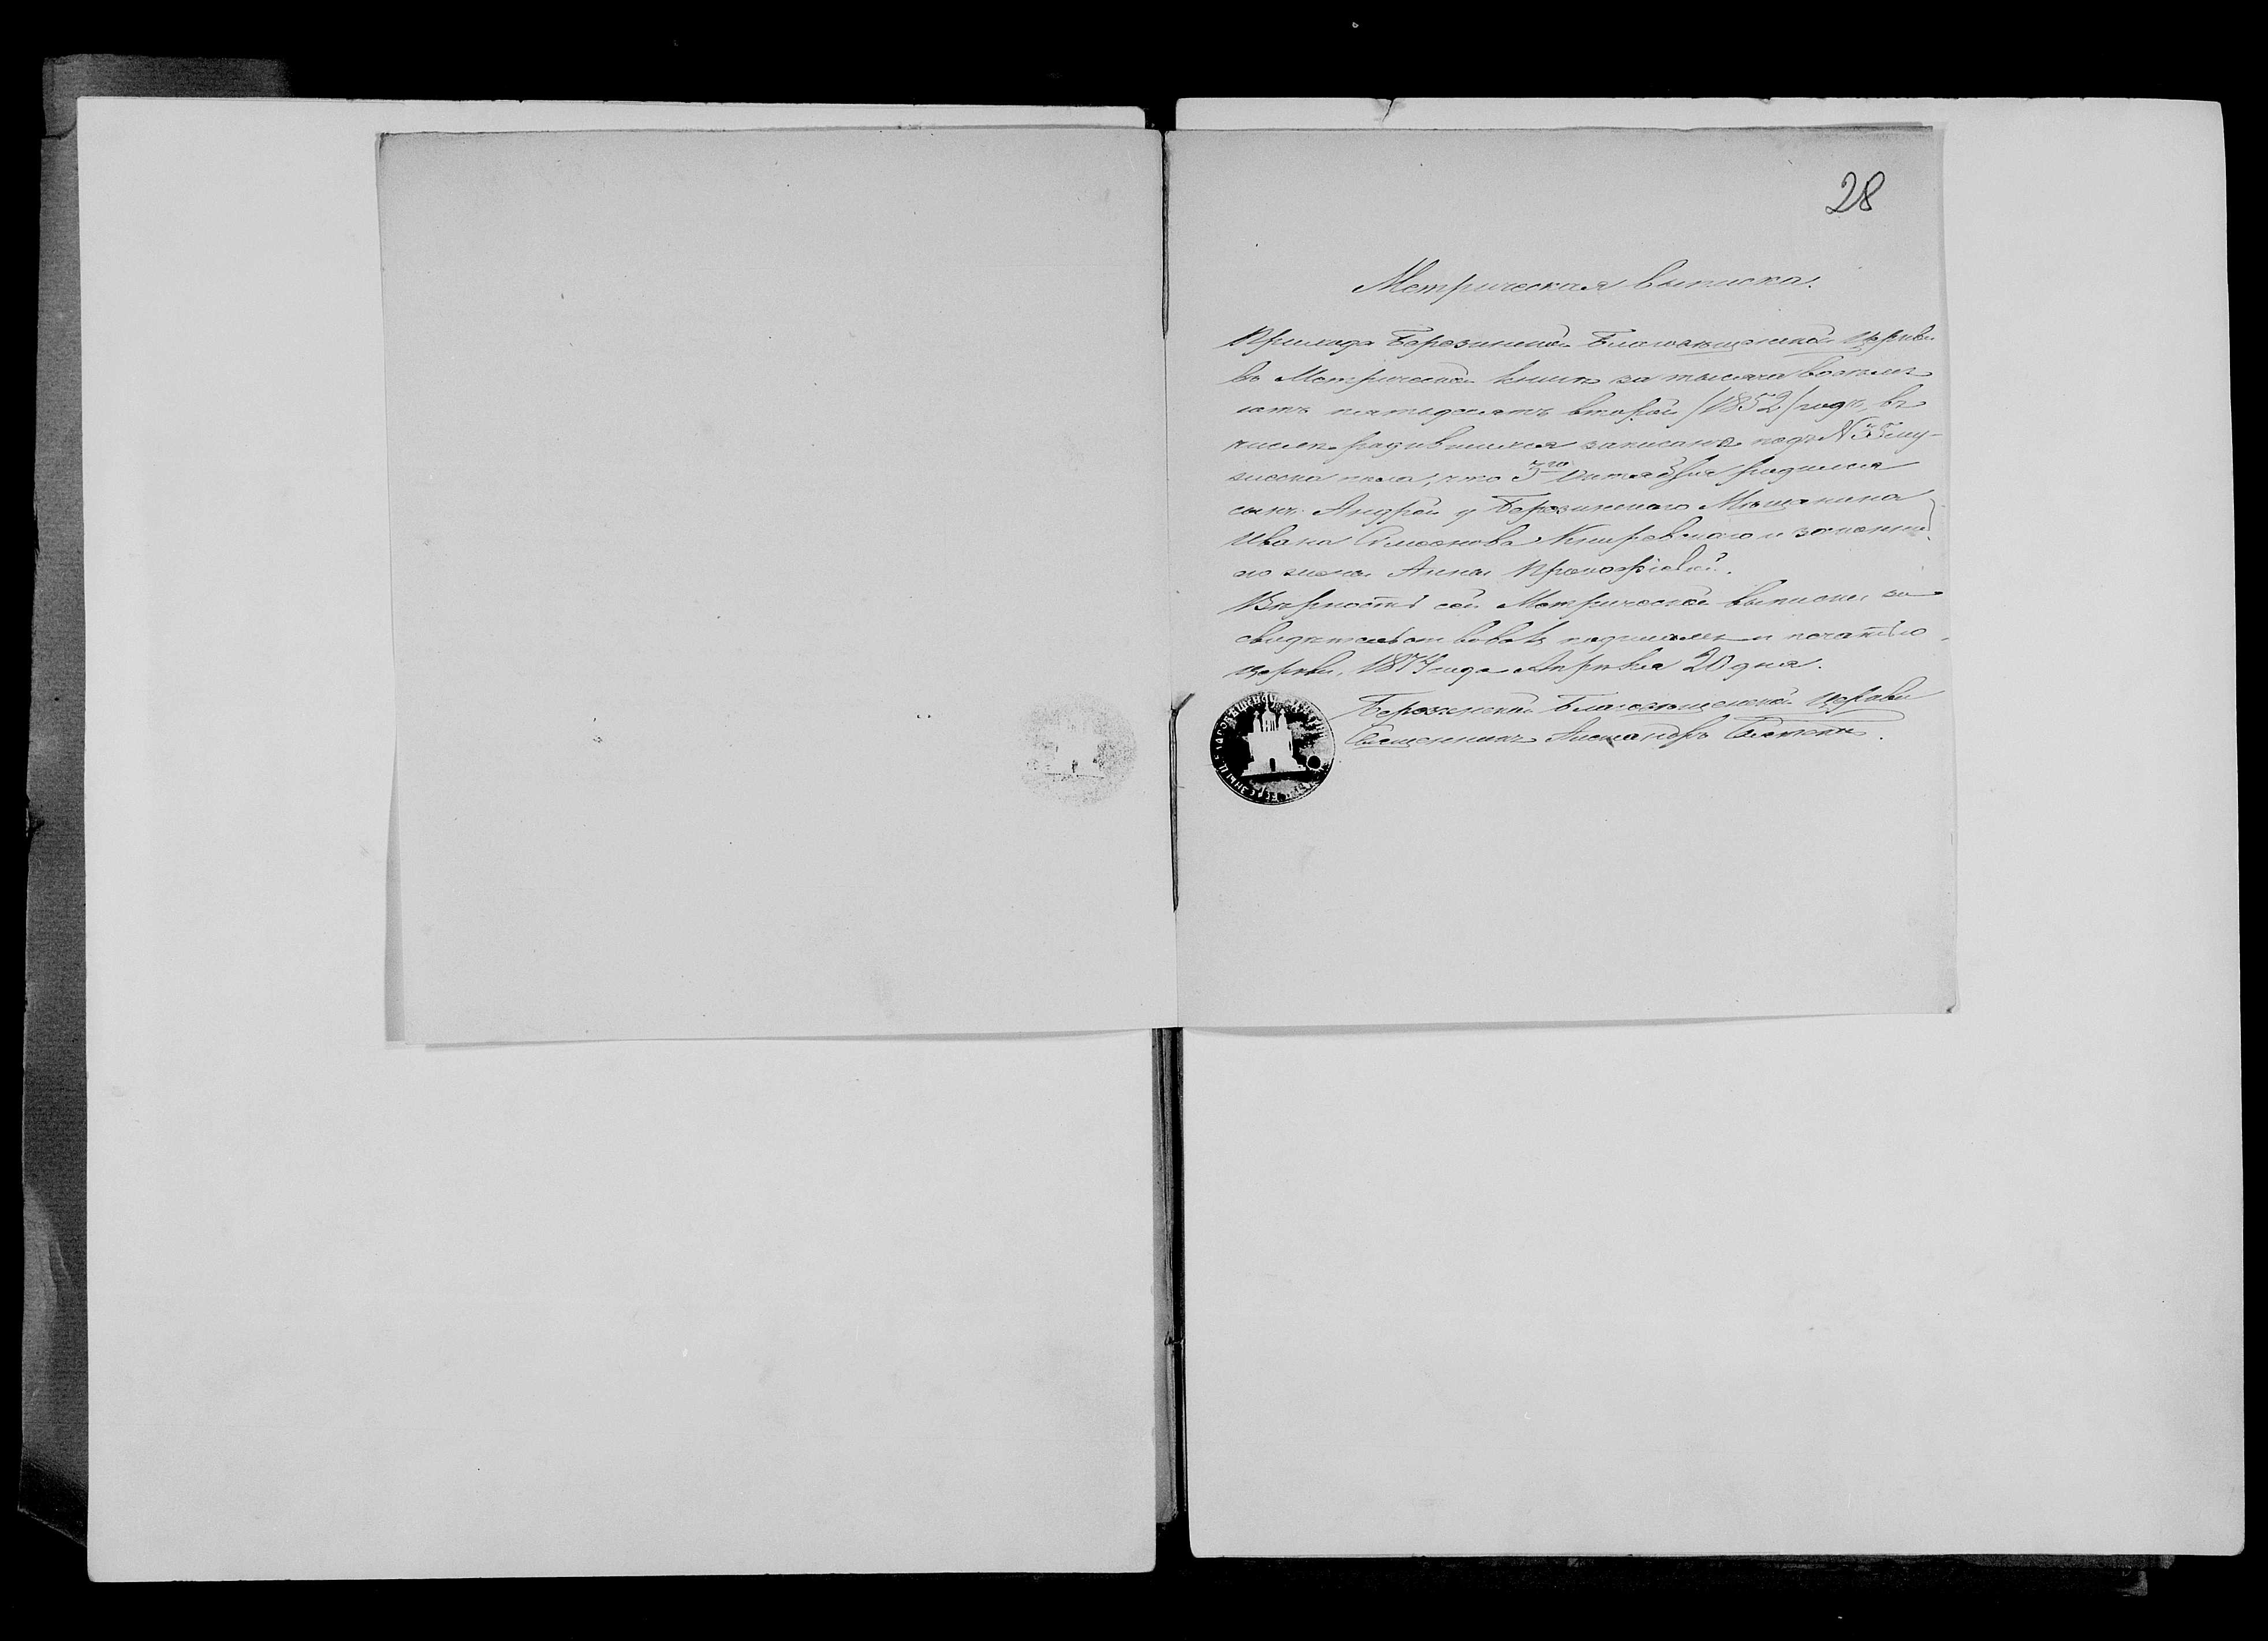 28
Метрическая выписка.
Прихода Березинской Благовещенской Церкви
въ Метрической книгѣ за тысяча восемь
сотъ пятьдесятъ второй /1852/ годъ, въ
числѣ родившихся записано подъ № му-
жеска пола, что 3го Октября родился
сынъ Андрей у Березинскаго Мѣщанина
Ивана Симеонова и законной
его жены Анны Прокофіевой.
Вѣрность сей Метрической выписки за-
свидѣтельствовавъ подписомъ и печатью
церкви, 1874 года Апрѣля 20 дня.
Березинской Благовещенской Церкви
Священникъ Александръ